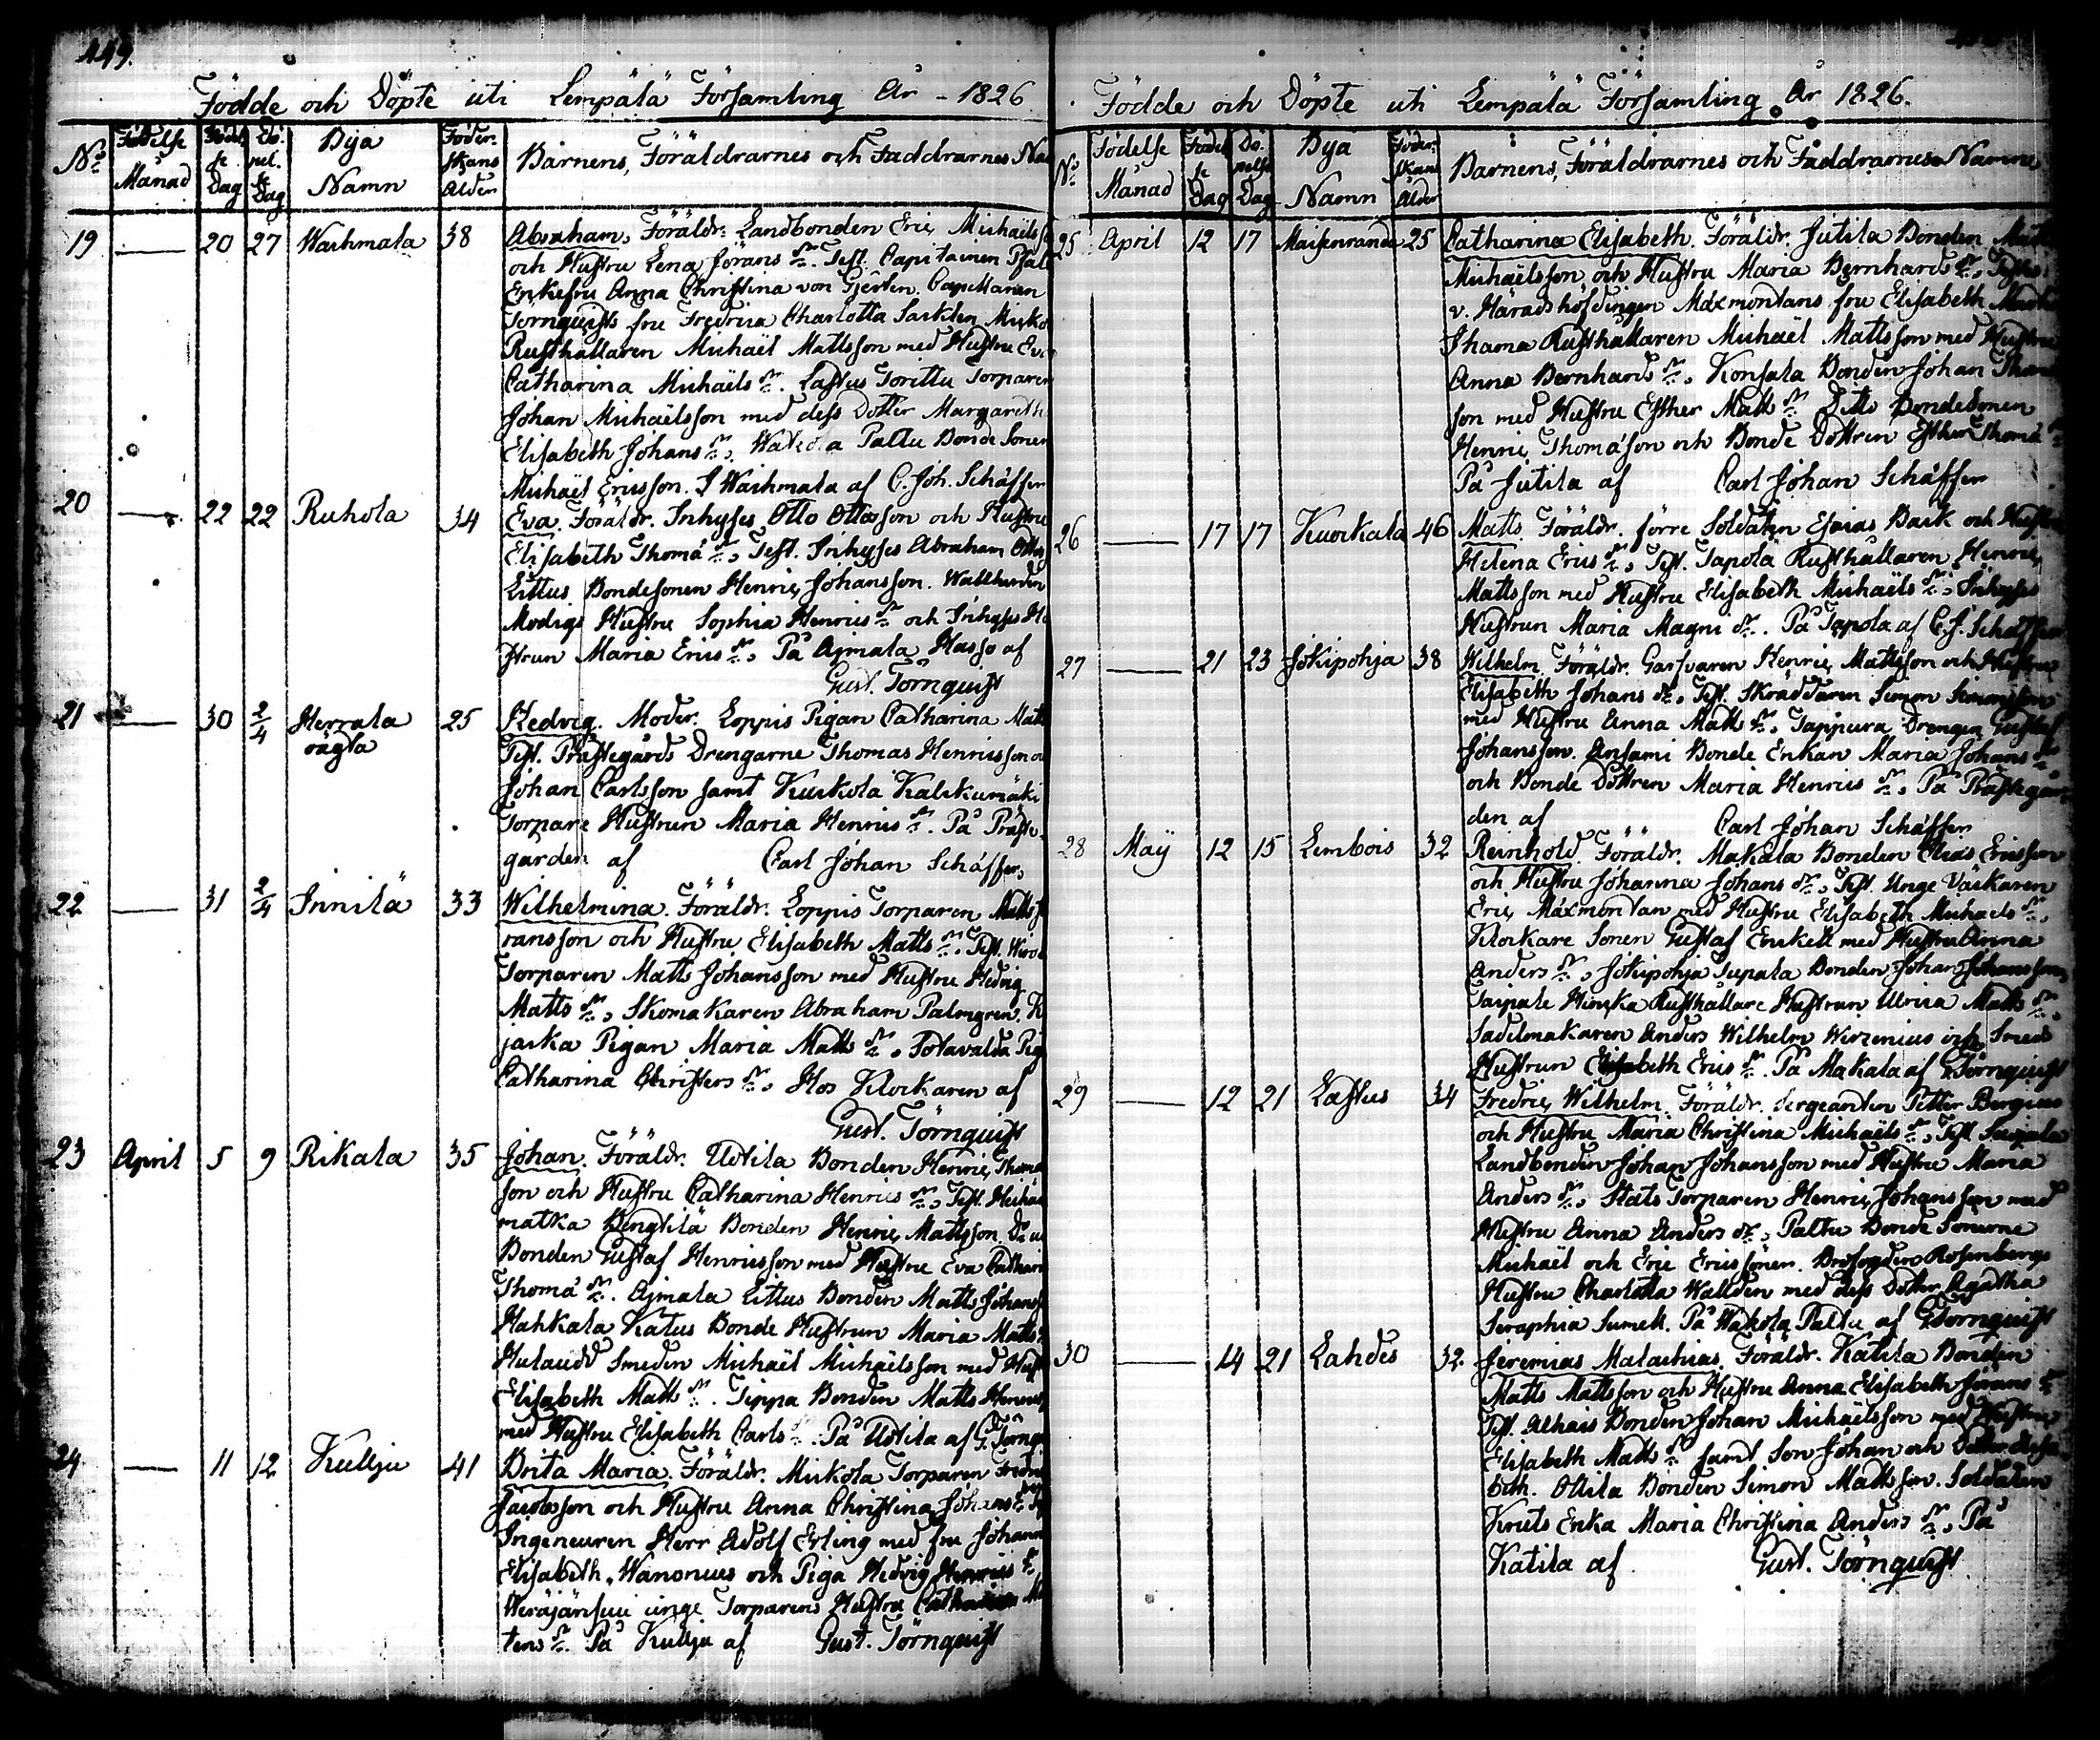 449.
Födde och Döpte uti Lempälä Församling År 1826.
No. Födelse Månad Födelse Dag Döpelse Dag Bya Namn Föderskans Ålder Barnens, Föräldrarnes och Faddrarnes Na
19 — 20 27 Waihmala 38 Abraham. Föräldr. Landbonden Eric Michaels
och Hustru Lena Jörans dr. Test. Capitainen
Enkefru Anna Christina von Gerten. Capellanen
Törnquists fru Fredrica Charlotta
Rusthållaren Michaël Mattsson med Hustru Eva
Catharina Michaëls dr. Lastus Torittu Torparen
Johan Michaëlsson med dess Dotter Margareth
Elisabeth Johans dr. Wakola Paltu Bonde Sonen
Michaël Ericsson. I Waihmala af C. Joh. Schäffer
20 — 22 22 Ruhola 34 Eva. Föräldr. Inhyses Otto Ottosson och Hustru
Elisabeth Thoma dr. Test. Inhyses Abraham Otto
Littus Bondesonen Henric Johansson.
Modigs Hustru Sophia Henrics dr och Inhyses Hu
strun Maria Erics dr. På Ajmala Hasso af
Gust. Törnquist
21 — 30 2/4 Herrala rågla 25 Hedvig. Moder. Loppis Pigan Catharina Matts
Test. Prästegårds Drengarne Thomas Henricsson o
Johan Carlsson samt Kuokola Kalckumäki
Torpare Hustrun Maria Henrics dr. På Präste-
gården af Carl Johan Schäffer.
22 — 31 2/4 Innilä 33 Wilhelmina. Föräldr. Loppis Torparen Matts
ransson och Hustru Elisabeth Matts dr. Test.
Torparen Matts Johansson med Hustru Hedvig
Matts dr. Skomakaren Abraham Palmgren.
jaska Pigan Maria Matts dr. Potavalda Pig
Catharina Christers dr. Hos Klockaren af
Gust. Törnquist
23 April 5 9 Rikala 35 Johan. Föräldr. Uotila Bonden Henric Thoma
son och Hustru Catharina Henrics dr. Test.
matka Bengtilä Bonden Henric Mattsson.
Bonden Gustaf Henricsson med Hustru Eva Cathari
Thoma dr. Ajmala Littus Bonden Matts Johans
Hahkala Katus Bonde Hustrun Maria Matts
Hulaudd Smeden Michaël Michaëlsson med Hust
Elisabeth Matts dr. Teppa Bonden Matts Henrics
med Hustru Elisabeth Carls dr. På Uotila af G. Törnqu
24 — 11 12 Kulju 41 Brita Maria. Föräldr. Mickola Torparen Fredri
Jacobsson och Hustru Anna Christina Johans dr.
Ingeneuren Herr Adolf Erling med fru Johann
Elisabeth Wanonius och Piga Hedvig Henrics dr.
unge Torparens Hustru Catharina Mår
tens dr. På Kulju af Gust. Törnquist
Födde och Döpte uti Lempälä Församling År 1826.
No. Födelse Månad Födelse Dag Döpelse Dag Bya Namn Föderskans Ålder Barnens, Föräldrarnes och Faddrarnes Namn
25 April 12 17 Maisenranda 25 Catharina Elisabeth. Föräldr. Jutila Bonden
Michaëlsson och Hustru Maria Bernhards dr. Test.
v. Häradshöfdingen Maxmontans fru Elisabeth
Rusthållaren Michaël Mattsson med Hustru
Anna Bernhards dr. Konsala Bonden Johan Thoma
son med Hustru Esther Matts dr. Ditto Bondesonen
Henric Thomasson och Bonde Dottren Esther Thoma dr
På Jutila af Carl Johan Schäffer
26 — 17 17 Kuokala 46 Matts. Föräldr. förre Soldaten Esaias Bask och Hustru
Helena Erics dr. Test. Tapola Rusthållaren Henric
Mattsson med Hustru Elisabeth Michaëls dr. Inhyses
Hustrun Maria Magni dr. På Tapola af C. J. Schäffer
27 — 21 23 Jokipohja 38 Wilhelm. Föräldr. Garfvaren Henric Mattsson och Hustru
Elisabeth Johans dr. Test. Skräddaren Simon Simonsson
med Hustru Anna Matts dr. Tappura Drengen Gustaf
Johansson. Ansami Bonde Enkan Maria Johans dr.
och Bonde Dottren Maria Henrics dr. På Prästegår
den af Carl Johan Schäffer
28 Maÿ 12 15 Lembois 32 Reinhold. Föräldr. Makala Bonden Elias Ericsson
och Hustru Johanna Johans dr. Test. Unge Väskaren
Eric Maxmontan med Hustru Elisabeth Michaels dr.
Klockare Sonen Gustaf Enckell med Hustru Anna
Anders dr. Jokipohja Supala Bonden Johan Johansson
Taipale Himska Rusthållare Hustrun Ulrica Matts dr.
Sadelmakaren Anders Wilhelm Wirzenius och Smed
Hustrun Elisabeth Erics dr. På Makala af G. Törnquist
29 — 12 21 Lastus 34 Fredric Wilhelm. Föräldr. Sergeanten Petter Bergius
och Hustru Maria Christina Michaëls dr. Test. Saipala
Landbonden Johan Johansson med Hustru Maria
Anders dr. Stats Torparen Henric Johansson med
Hustru Anna Anders dr. Paltu Bonde Sönerne
Michaël och Eric Ericssöner. Brofogden Rosenbergs
Hustru Charlotta Wallden med dess Dotter Agatha
Seraphia Sumell. På Wakola Paltu af G. Törnquist
30 — 14 21 Lahdes 32 Jeremias Malachias. Föräldr. Katila Bonden
Matts Mattsson och Hustru Anna Elisabeth Jörans dr
Test. Alhais Bonden Johan Michaëlsson med Hustru
Elisabeth Matts dr. samt Son Johan och Dotter Elisa
beth. Ollila Bonden Simon Mattsson. Soldaten
Kruts Enka Maria Christina Anders dr. På
Katila af Gust. Törnquist.